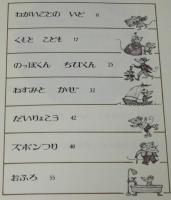 ねがいごとの いど 8
くもと こども 17
のっぽくん ちびくん 25
ねずみと かぜ 32
だいりょこう 42
ズボンつり 48
おふろ 55